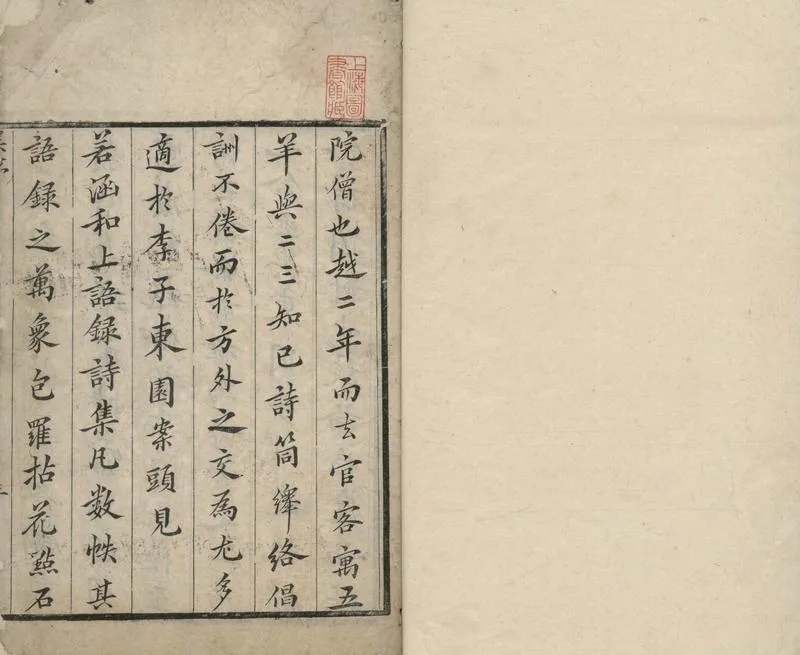 上海圖
書館藏
院僧也越二年而去官客寓五
羊與二三知已詩筒繹絡倡
訓不倦而於方外之交為尤多
適於李子東園案頭見
若涵和上語録詩集凡数帙其
語録之萬象包羅拈花㸃石